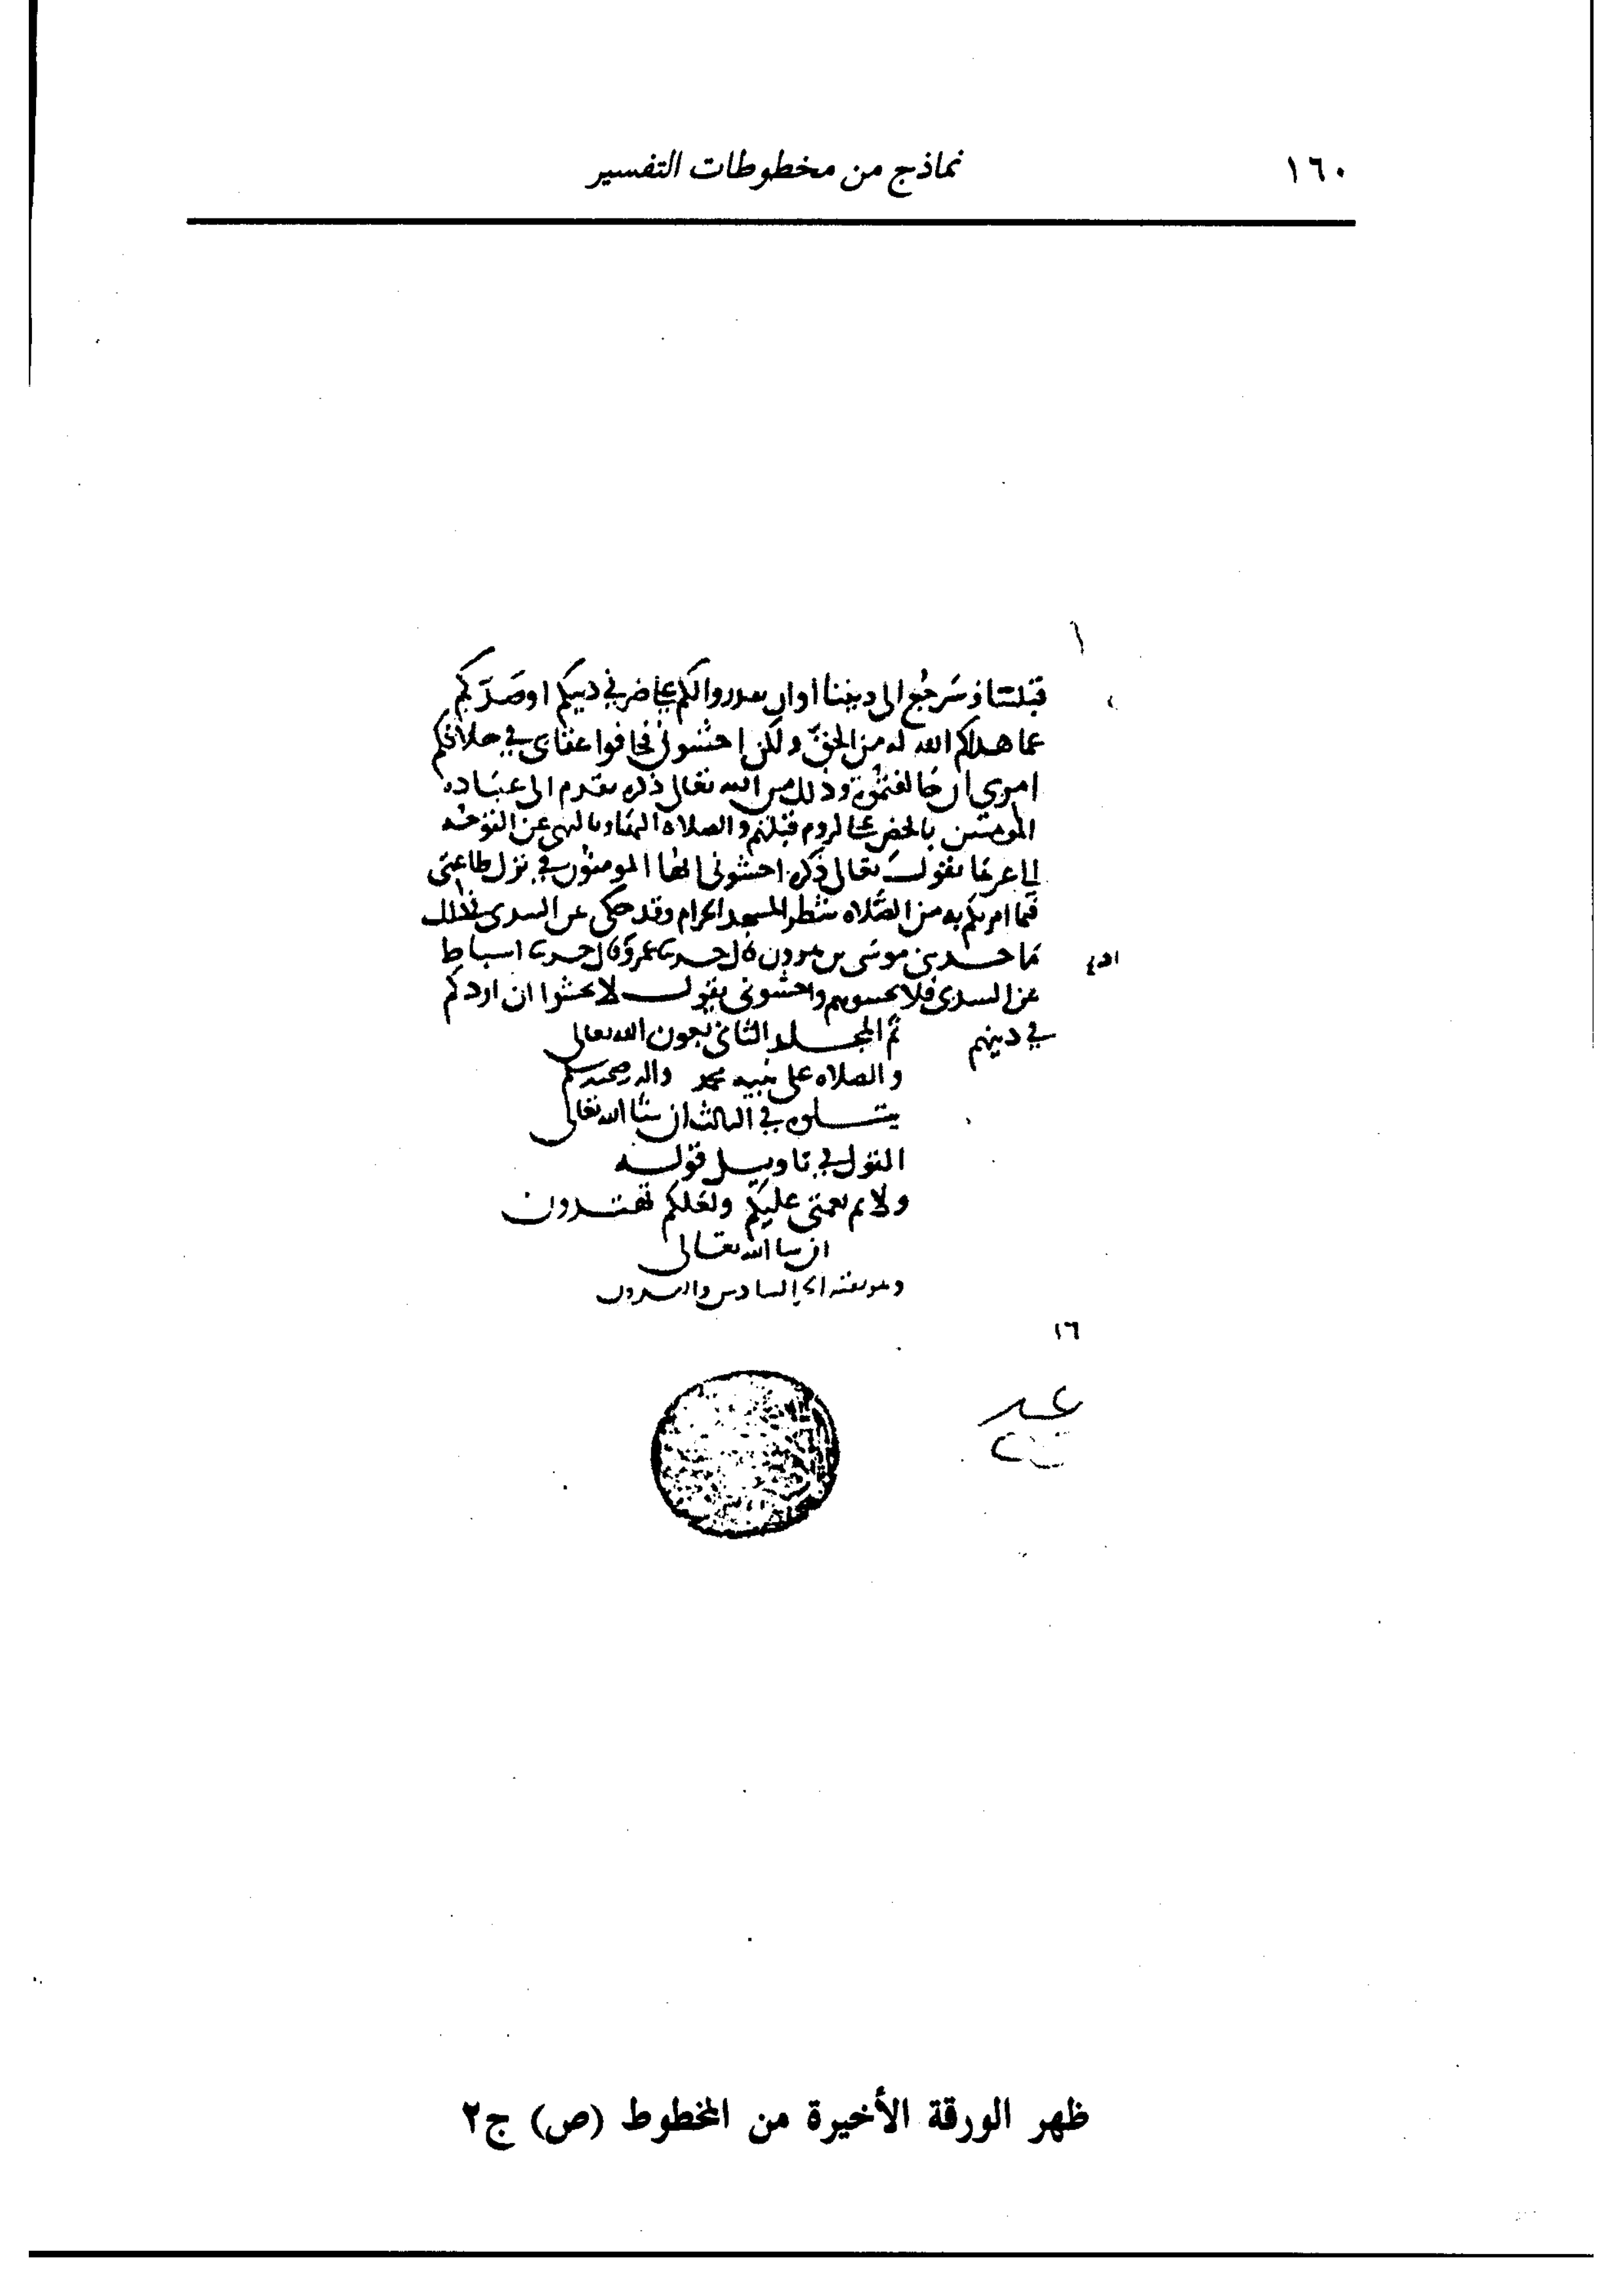 ١٦٠
نماذج من مخطوطات التفسير
قبلتنا وسيرجع الى ديننا او ان يقدروا لكم على ضر في دينكم او صدكم
عما هداكم الله له من الحق ولكن اخشوني فخافوا عقابي في خلافكم
امري ان خالفتموه وذلك من الله تعالى ذكره تقدم الى عباده
المومنين بالحض على لزوم قبلتهم والصلاة اليها وبالنهي عن التوجه
الى غيرها يقول تعالى ذكره اخشوني ايها المومنون في ترك طاعتي
فيما امرتكم به من الصلاه شطر المسجد الحرام وقد حكي عن السدي في ذلك
ما حدثني موسى بن هرون قال حدثنا عمرو قال حدثنا اسباط
عن السدي فلا تخشوهم واخشوني يقول لا تخشوا ان اردكم
في دينهم
تم المجلد الثاني بعون الله تعالى
والصلاه على نبيه محمد واله وصحبه وسلم
يتلوه في الثالث ان شا الله تعالى
القول في تاويل قوله
ولاتم نعمتي عليكم ولعلكم تهتدون
ان شا الله تعالى
١٦
ظهر الورقة الأخيرة من المخطوط (ص) ج٢